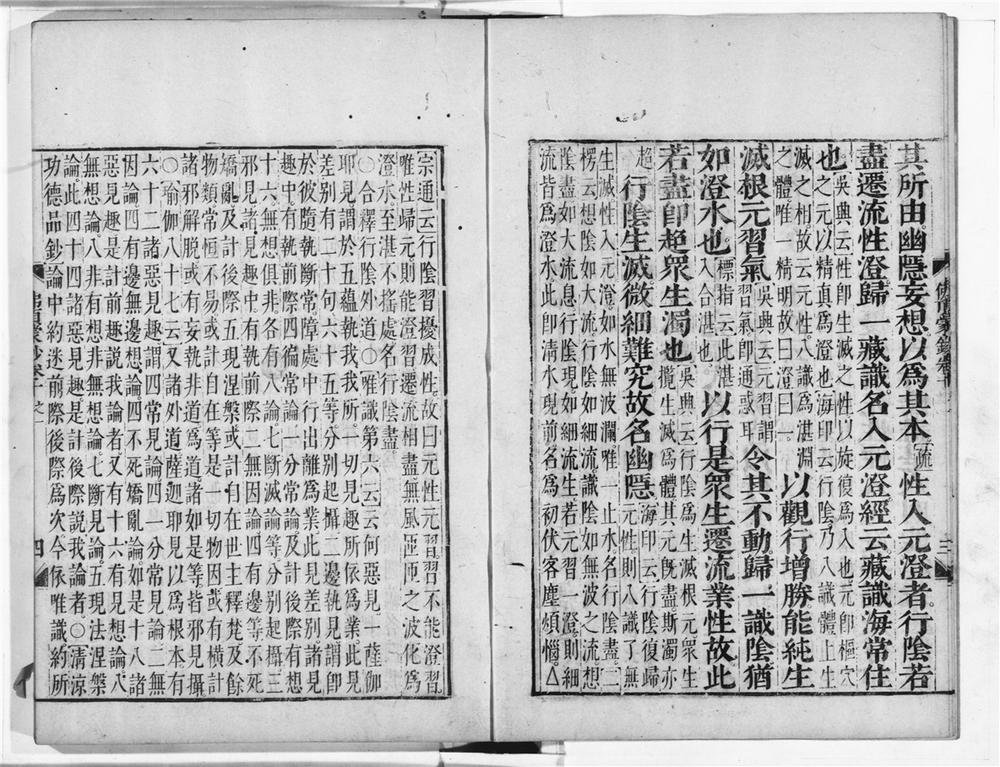 其所由幽隱妄想以爲其本疏性入元澄者行陰若
盡遷流性澄歸一藏識名入元澄經云藏識海常住
也吳興云性卽生滅之性以旋復爲入也元卽樞穴
之元以精真爲澄也海印云行陰乃八識體上生
滅之相故云元性八識爲湛淵
之體唯一精明故曰澄曰一以觀行增勝能純生
滅根元習氣吳興云元習謂
習氣卽通惑耳令其不動歸一識陰猶
如澄水也標指云此
入合湛也以行是衆生遷流業性故此
若盡卽超衆生濁也吳興云行陰爲生滅根元衆生
攬生滅爲體其元旣盡斯濁亦
超行陰生滅微細難究故名幽隱海印云行陰盡復歸
元性則八識了無
生滅性入元澄如水無波瀾唯一止水名行陰盡二
楞云想陰如大水無波細流識陰如無波之流想
陰盡如大流息行陰現如細流生若元習一澄則細
流皆爲澄水此卽清水現前名爲初伏客塵煩惱△
佛頂蒙鈔卷十之一
三
宗通云行陰習擾成性故曰元性元習習不能澄習
唯性歸元則能澄習遷流相盡無風匝匝之波化爲
澄水至湛不搖處名行陰盡
〇合釋行陰外道〇唯識第六云云何惡見一薩伽
耶見謂於五蘊執我我所一切見趣所依爲業此見
差別有二十句六十五等分別起攝二邊執見謂卽
於彼隨執斷常障處中行出離爲業此見差別諸見
趣中有執前際四徧常論一分常論及計後際有想
十六無想俱非各有八論七斷滅論等分別起攝三
邪見諸見趣中有執前際二無因論四有邊等不死
矯亂及計後際五現涅槃或計自在世主釋梵及餘
物類常恒不易或計自在等是一切物因或有橫計
諸邪解脫或有妄執非道爲道諸如是等皆邪見攝
〇瑜伽八十七云又諸外道薩迦耶見以爲根本有
六十二諸惡見趣謂四常見論四一分常見論二無
因論四有邊無邊想論四不死矯亂論如是十八諸
惡見趣是計前趣說我論者又有十六有見想論八
無想論八非有想非無想論七斷見論五現法涅槃
論此四十四諸惡見趣是計後際說我論者〇清涼
功德品鈔論中約迷前際後際爲次今依唯識約所
佛頂蒙鈔卷十之一
四